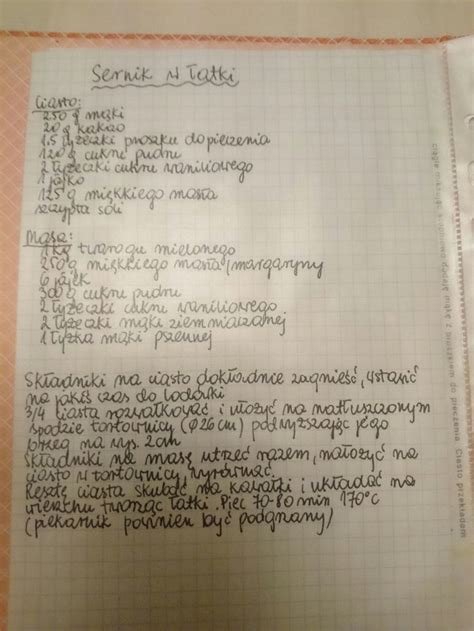 Sernik w łatki
Ciasto:
250 g mąki
20 g kakao
1,5 łyżeczki proszku do pieczenia
120 g cukru pudru
2 łyżeczki cukru waniliowego
1 jajko
125 g miękkiego masła
szczypta soli
Masa:
1 kg twarogu mielonego
250 g miękkiego masła/margaryny
6 jajek
300 g cukru pudru
2 łyżeczki cukru waniliowego
2 łyżeczki mąki ziemniaczanej
1 łyżka mąki pszennej
Składniki na ciasto dokładnie zagnieść, wstawić
na jakiś czas do lodówki
3/4 ciasta rozwałkować i ułożyć na natłuszczonym
spodzie tortownicy (Ø 26 cm) podwyższając jego
brzeg na wys. 2cm
Składniki na masę utrzeć razem, nałożyć na
ciasto w tortownicy, wyrównać.
Resztę ciasta skubać na kawałki i układać na
wierzchu tworząc łatki. Piec 70-80 min 170°C
(piekarnik powinien być podgrzany)
z proszkiem do pieczenia. Ciasto przekładam